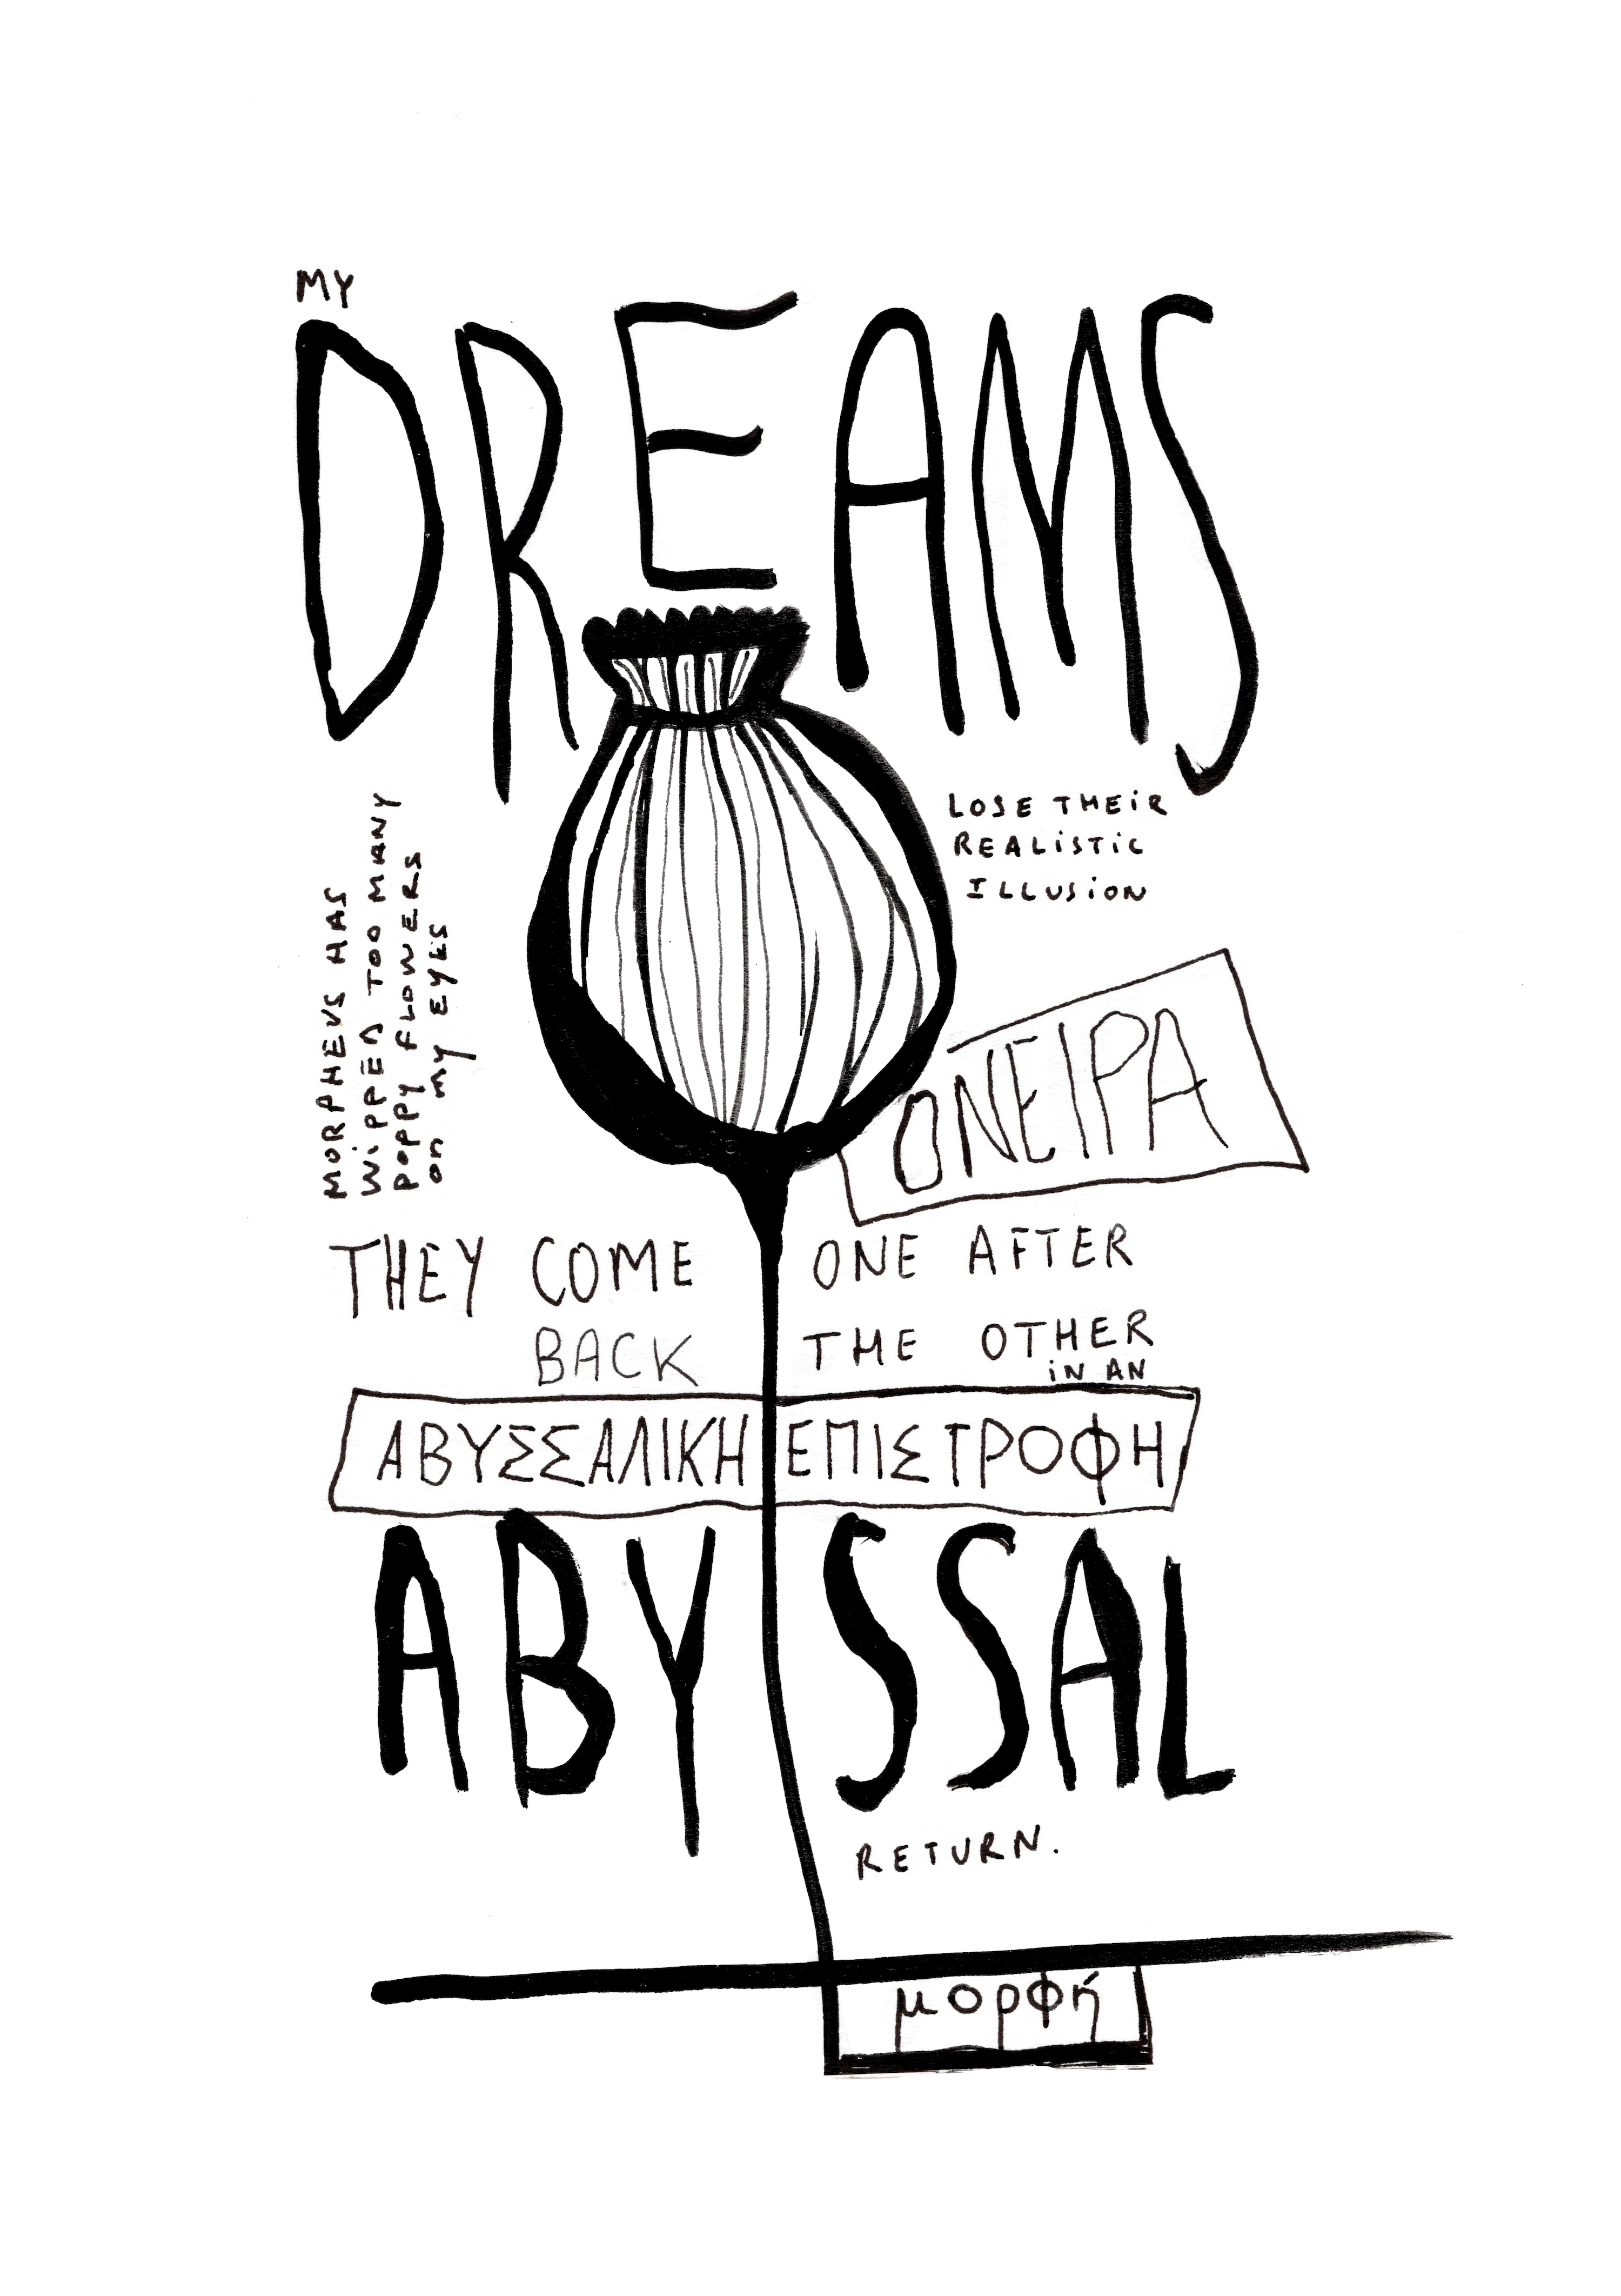 MY
DREAMS
LOSE THEIR
REALISTIC
ILLUSION
MORPHEUS HAS
WIPPED TOO MANY
POPPY FLOWERS
ON MY EYES
ONEIPA
THEY COME ONE AFTER
BACK THE OTHER
IN AN
ΑΒΥΣΣΑΛΙΚΗ ΕΠΙΣΤΡΟΦΗ
ABYSSAL
RETURN.
μορφή